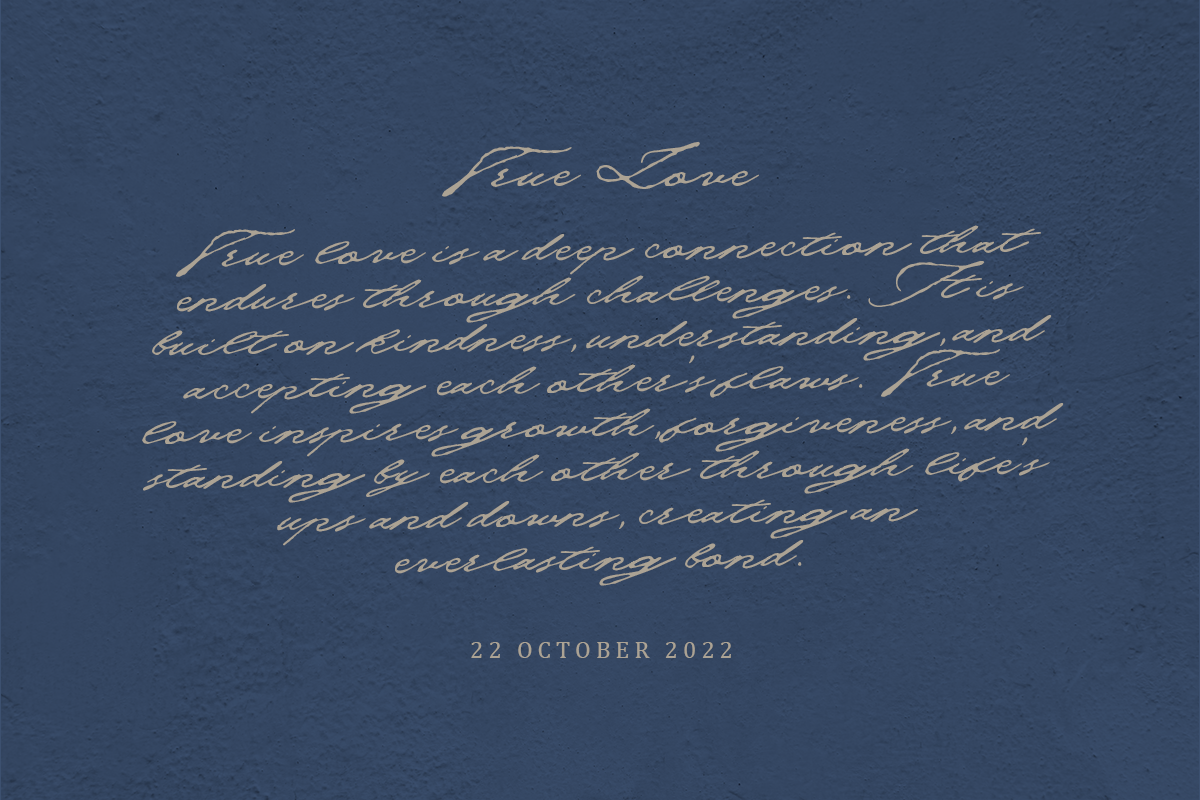 True Love
True love is a deep connection that
endures through challenges. It is
built on kindness, understanding, and
accepting each other's flaws. True
love inspires growth, forgiveness, and
standing by each other through life's
ups and downs, creating an
everlasting bond.
22 OCTOBER 2022